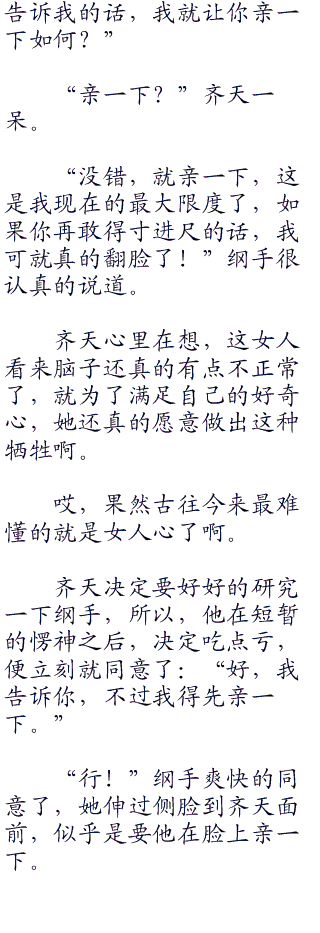 告诉我的话，我就让你亲一
下如何？”
“亲一下？”齐天一
呆。
“没错，就亲一下，这
是我现在的最大限度了，如
果你再敢得寸进尺的话，我
可就真的翻脸了！”纲手很
认真的说道。
齐天心里在想，这女人
看来脑子还真的有点不正常
了，就为了满足自己的好奇
心，她还真的愿意做出这种
牺牲啊。
哎，果然古往今来最难
懂的就是女人心了啊。
齐天决定要好好的研究
一下纲手，所以，他在短暂
的愣神之后，决定吃点亏，
便立刻就同意了：“好，我
告诉你，不过我得先亲一
下。”
“行！”纲手爽快的同
意了，她伸过侧脸到齐天面
前，似乎是要他在脸上亲一
下。